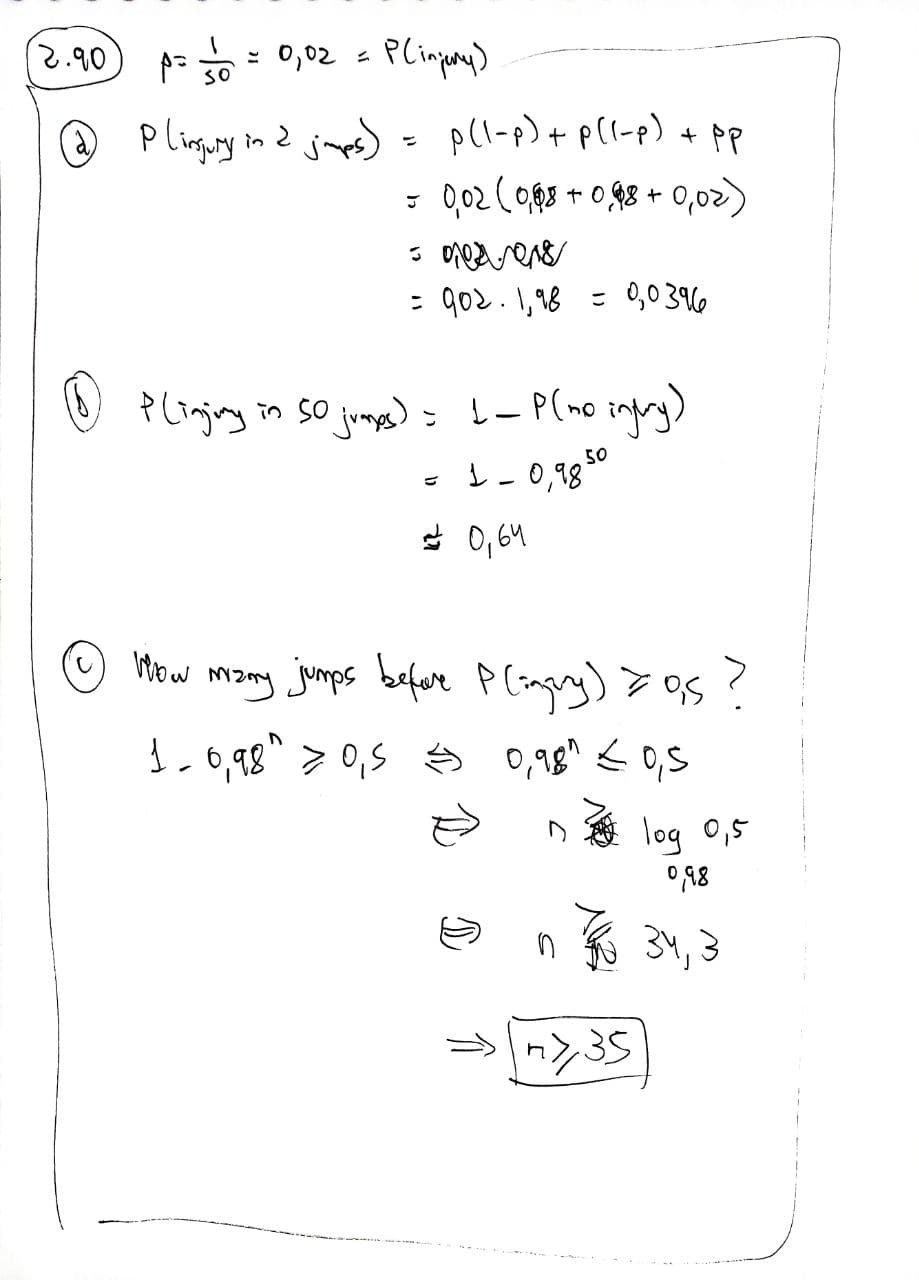 2.90 p = 1/50 = 0,02 = P(injury)
a P(injury in 2 jumps) = p(1-p) + p(1-p) + pp
= 0,02(0,98 + 0,98 + 0,02)
=
= 0,02 . 1,98 = 0,0396
b P(injury in 50 jumps) = 1 - P(no injury)
= 1 - 0,98^50
≅ 0,64
c How many jumps before P(injury) ≥ 0,5 ?
1 - 0,98^n ≥ 0,5 ⇔ 0,98^n ≤ 0,5
⇔ n ≥ log_0,98 0,5
⇔ n ≥ 34,3
⇒ n ≥ 35